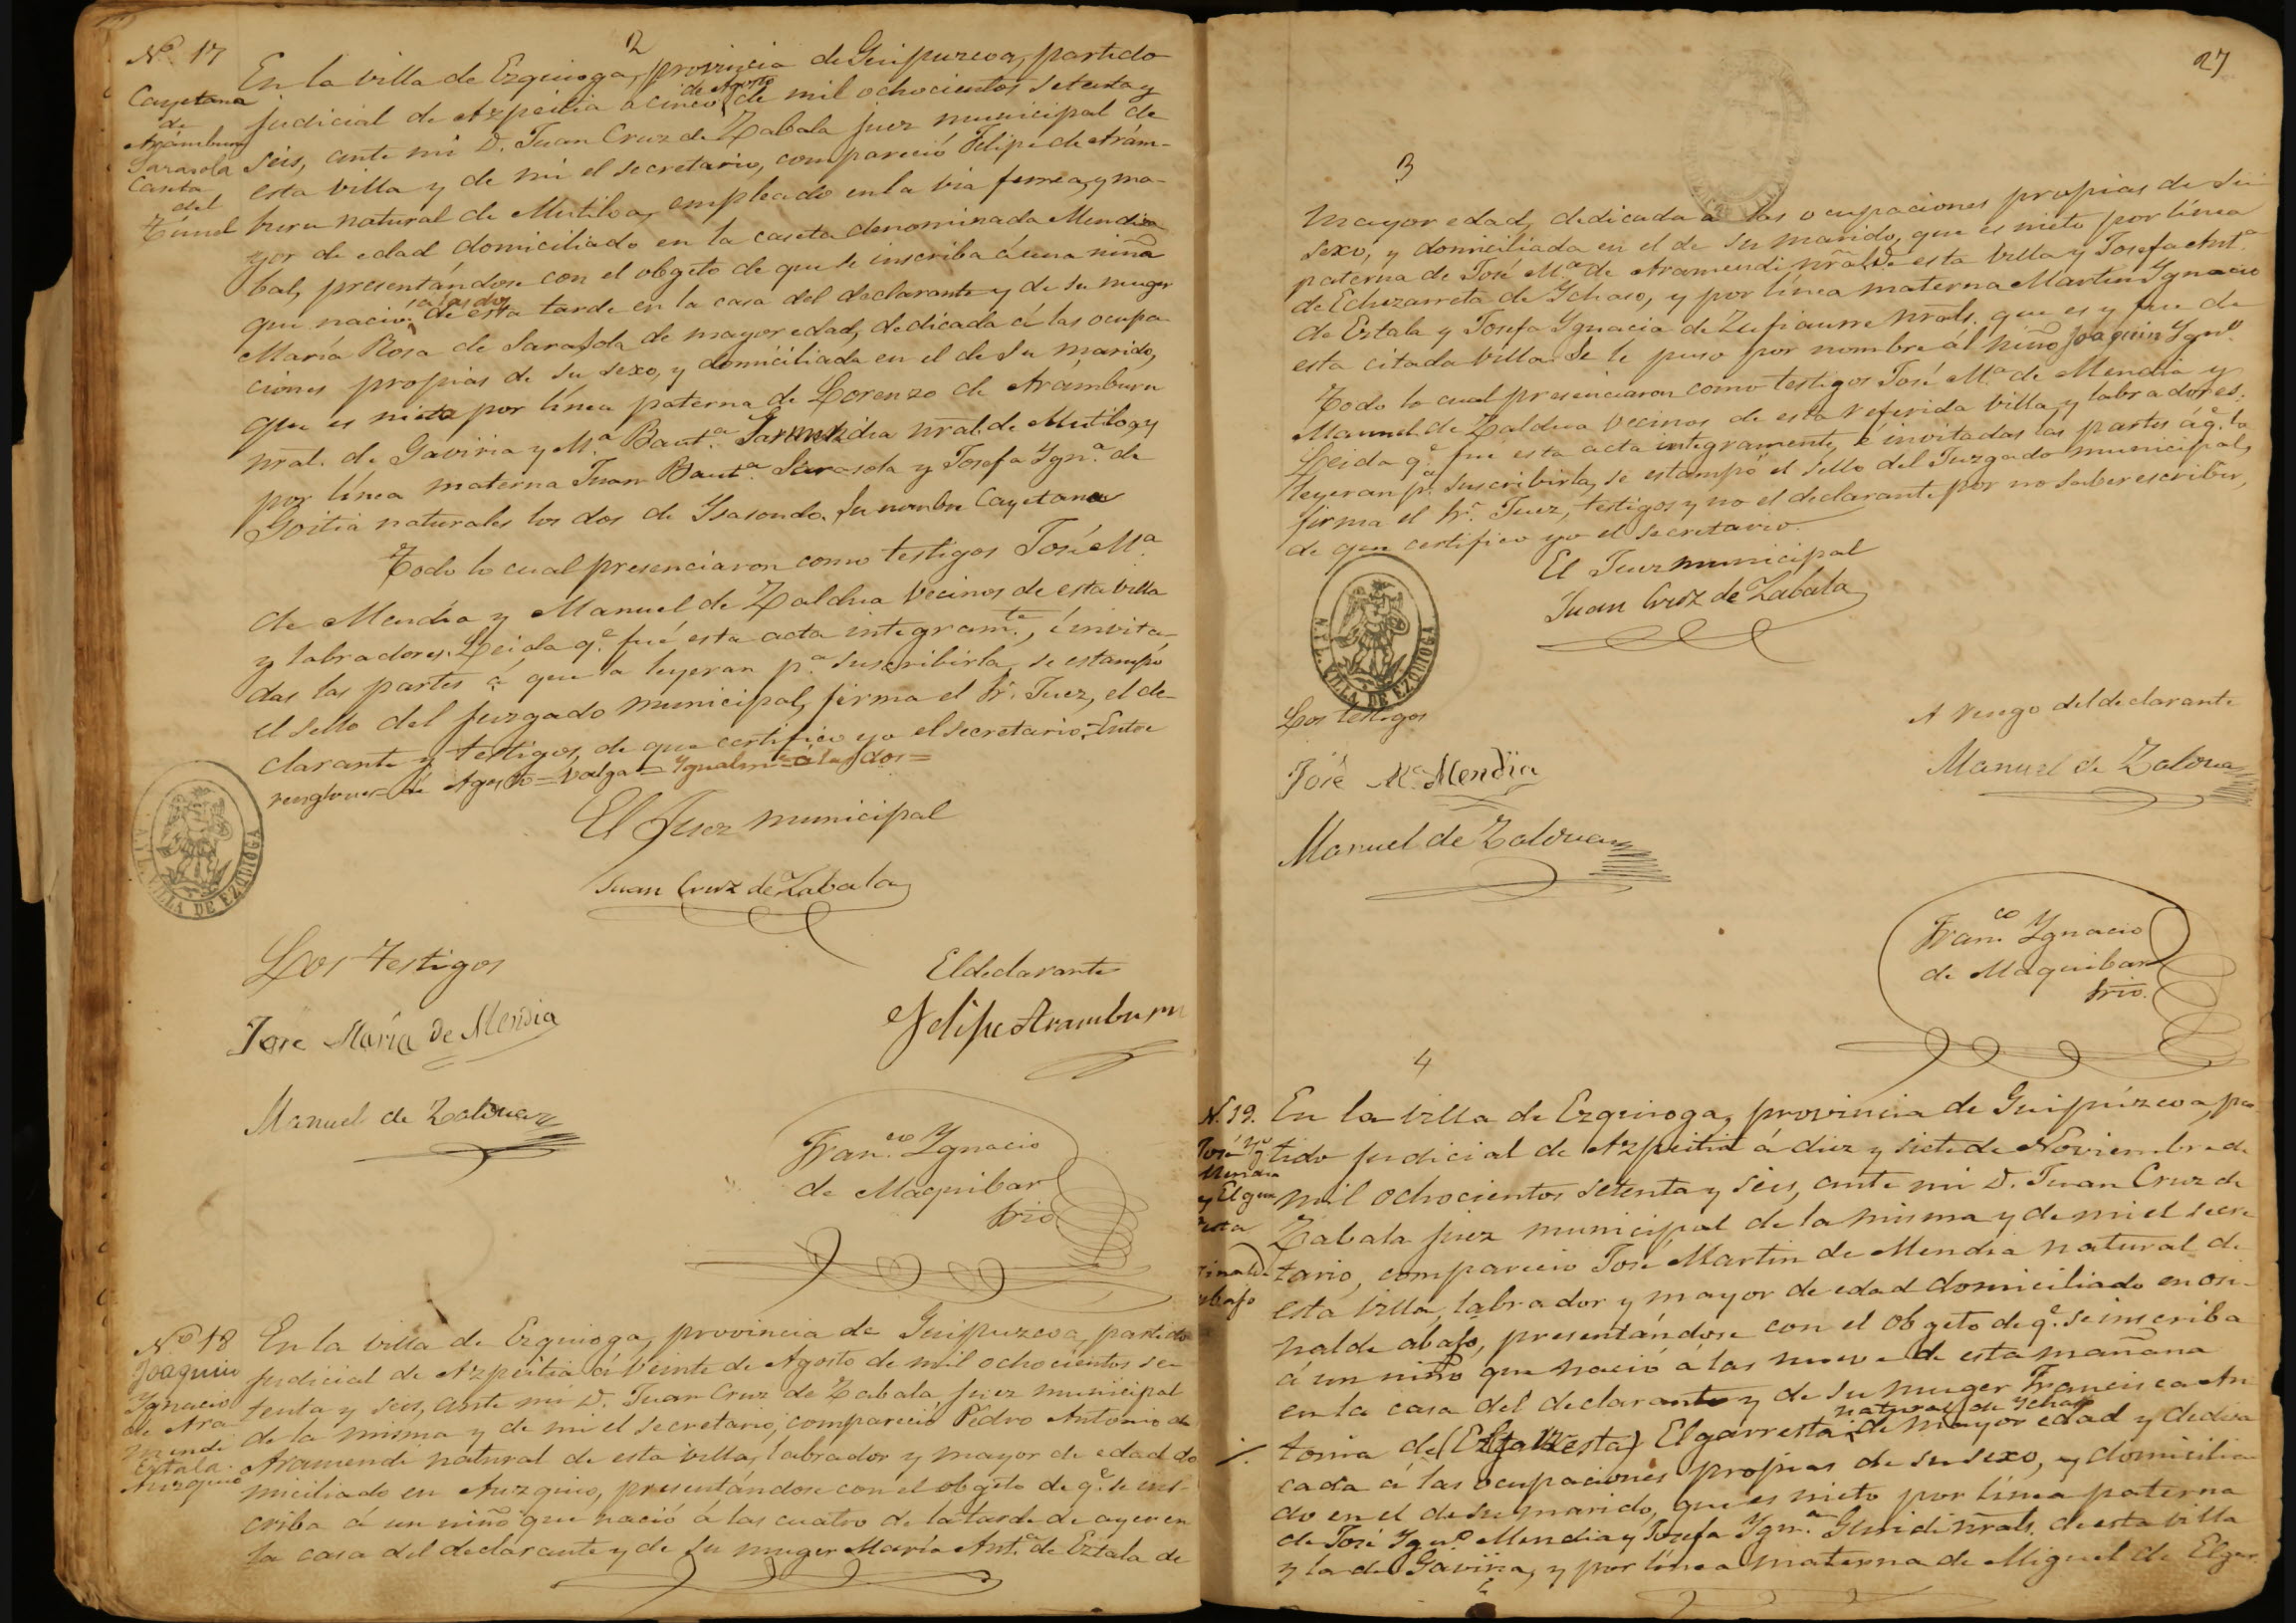 2
Nº 17
Cayetana
de
Arámburu
Sarasola
Caseta
del
Túnel
En la villa de Ezquioga, provincia de Guipuzcoa, partido
judicial de Azpeitia a cinco de Agosto de mil ochocientos setenta y
seis, ante mi D. Juan Cruz de Zabala juez municipal de
esta villa y de mi el secretario, compareció Felipe de Arám-
buru natural de Mutiloa, empleado en la via ferrea, y ma-
yor de edad domiciliado en la caseta denominada Mendiza
bal, presentándose con el obgeto de que se inscriba á una niña
que nació á las dos de esta tarde en la casa del declarante y de su muger
María Rosa de Sarasola de mayor edad, dedicada á las ocupa
ciones propias de su sexo, y domiciliada en el de su marido,
que es nieta por línea paterna de Lorenzo de Arámburu
nral. de Gaviria y Mª Bautª nral. de Mutiloa, y
por línea materna Juan Bautª Sarasola y Josefa Ygnª de
Goitia naturales los dos de Ysasondo. Su nombre Cayetana
Todo lo cual presenciaron como testigos José Mª
de Mendia y Manuel de Zaldua vecinos de esta villa
y labradores. Leida qe. fué esta acta integramte., é invita-
das las partes á que la leyeran pª suscribirla, se estampó
el sello del juzgado municipal, firma el Sr. Juez, el de-
clarante y testigos, de que certifico yo el secretario. Entre
renglones = de Agosto = valga = Ygualmte = á las dos =
El Juez municipal
Juan Cruz de Zabala
N. Y L. VILLA DE EZQUIOGA
Los testigos
José María de Mendia
Manuel de Zaldua
El declarante
Felipe Aramburu
Franco. Ygnacio
de Maquibar
Srio.
Nº 18
Joaquin
Ygnacio
de Ara
mendi
Eztala
Auzquio
En la villa de Ezquioga, provincia de Guipuzcoa, partido
judicial de Azpeitia á veinte de Agosto de mil ochocientos se-
tenta y seis, ante mi D. Juan Cruz de Zabala juez municipal
de la misma y de mi el secretario, compareció Pedro Antonio de
Aramendi natural de esta villa, labrador y mayor de edad do
miciliado en Auzquio, presentándose con el obgeto de qe. se ins-
criba á un niño que nació á las cuatro de la tarde de ayer en
la casa del declarante y de su muger María Antª de Eztala de
27
3
mayor edad, dedicada á las ocupaciones propias de su
sexo, y domiciliada en el de su marido, que es nieto por línea
paterna de José Mª de Aramendi nral. de esta villa y Josefa Antª
de Echezarreta de Ychaso, y por línea materna Martin Ygnacio
de Eztala y Josefa Ygnacia de Zufiaurre nrals. que es y fue de
esta citada villa. Se le puso por nombre al niño Joaquin Ygno.
Todo lo cual presenciaron como testigos José Mª de Mendia y
Manuel de Zaldua vecinos de esta referida villa, y labradores.
Leida qe. fué esta acta integramente, é invitadas las partes á qe. la
leyeran pª suscribirla, se estampó el sello del Juzgado municipal,
firma el Sr. Juez, testigos y no el declarante por no saber escribir,
de que certifico yo el secretario.
El Juez municipal
Juan Cruz de Zabala
N. Y L. VILLA DE EZQUIOGA
Los testigos
José Mª Mendia
Manuel de Zaldua
A ruego del declarante
Manuel de Zaldua
Franco. Ygnacio
de Maquibar
Srio.
4
N. 19.
José
Mendia
y Elgar
resta
abajo
En la villa de Ezquioga, provincia de Guipúzcoa, par
tido judicial de Azpeitia á diez y siete de Noviembre de
mil ochocientos setenta y seis, ante mi D. Juan Cruz de
Zabala juez municipal de la misma y de mi el secre
tario, compareció José Martin de Mendia natural de
esta villa, labrador y mayor de edad domiciliado en ori-
nalde abajo, presentándose con el obgeto de qe. se inscriba
á un niño que nació á las nueve de esta mañana
en la casa del declarante y de su muger Francisca An
tonia de Elgarresta natural de Ychaso de mayor edad y dedi
cada á las ocupaciones propias de su sexo, y domicilia
do en el de su marido, que es nieto por línea paterna
de José Ygno. Mendia y Josefa Ygnª nrals. de esta villa
y la de Gaviria, y por línea materna de Miguel de Elgar